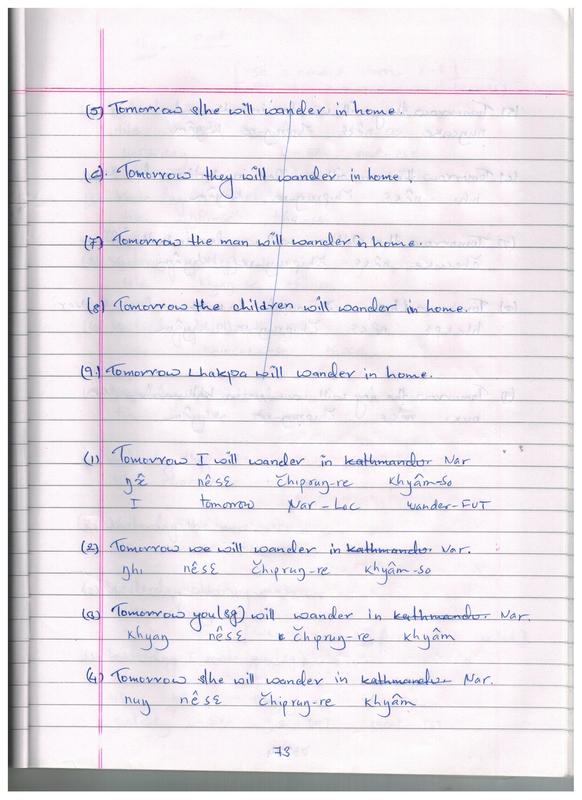 (5) Tomorrow s/he will wander in home.
(6). Tomorrow they will wander in home.
(7) Tomorrow the man will wander in home.
(8) Tomorrow the children will wander in home.
(9.) Tomorrow Lhakpa will wander in home.
(1) Tomorrow I will wander in kathmandu. Nar
ŋê̵ nêsɛ čhipruŋ-re khyâm-so
I tomorrow Nar-Loc wander-FUT
(2) Tomorrow we will wander in kathmandu. Nar.
ŋhi nêsɛ čhipruŋ-re khyâm-so
(3) Tomorrow you(sg) will wander in kathmandu. Nar.
khyaŋ nêsɛ čhipruŋ-re khyâm
(4) Tomorrow s/he will wander in kathmandu. Nar.
nuŋ nêsɛ čhipruŋ-re khyâm
73